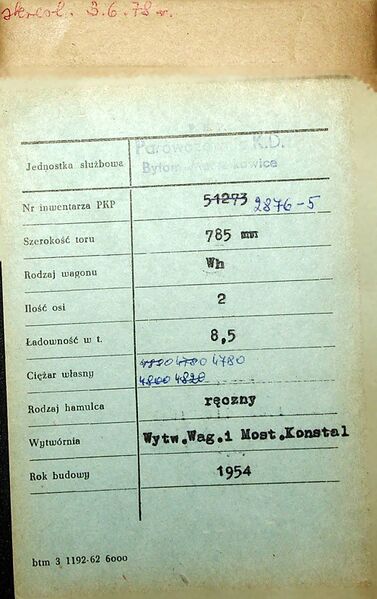 skreśl. 3.6.78 r.
Jednostka służbowa Parowozownia K.D.
Bytom
Nr inwentarza PKP 51273 2876-5
Szerokość toru 785 mm
Rodzaj wagonu Wh
Ilość osi 2
Ładowność w t. 8,5
Ciężar własny 4780 4780
4800 4820
Rodzaj hamulca ręczny
Wytwórnia Wytw.Wag.i Most.Konstal
Rok budowy 1954
btm 3 1192-62 6000